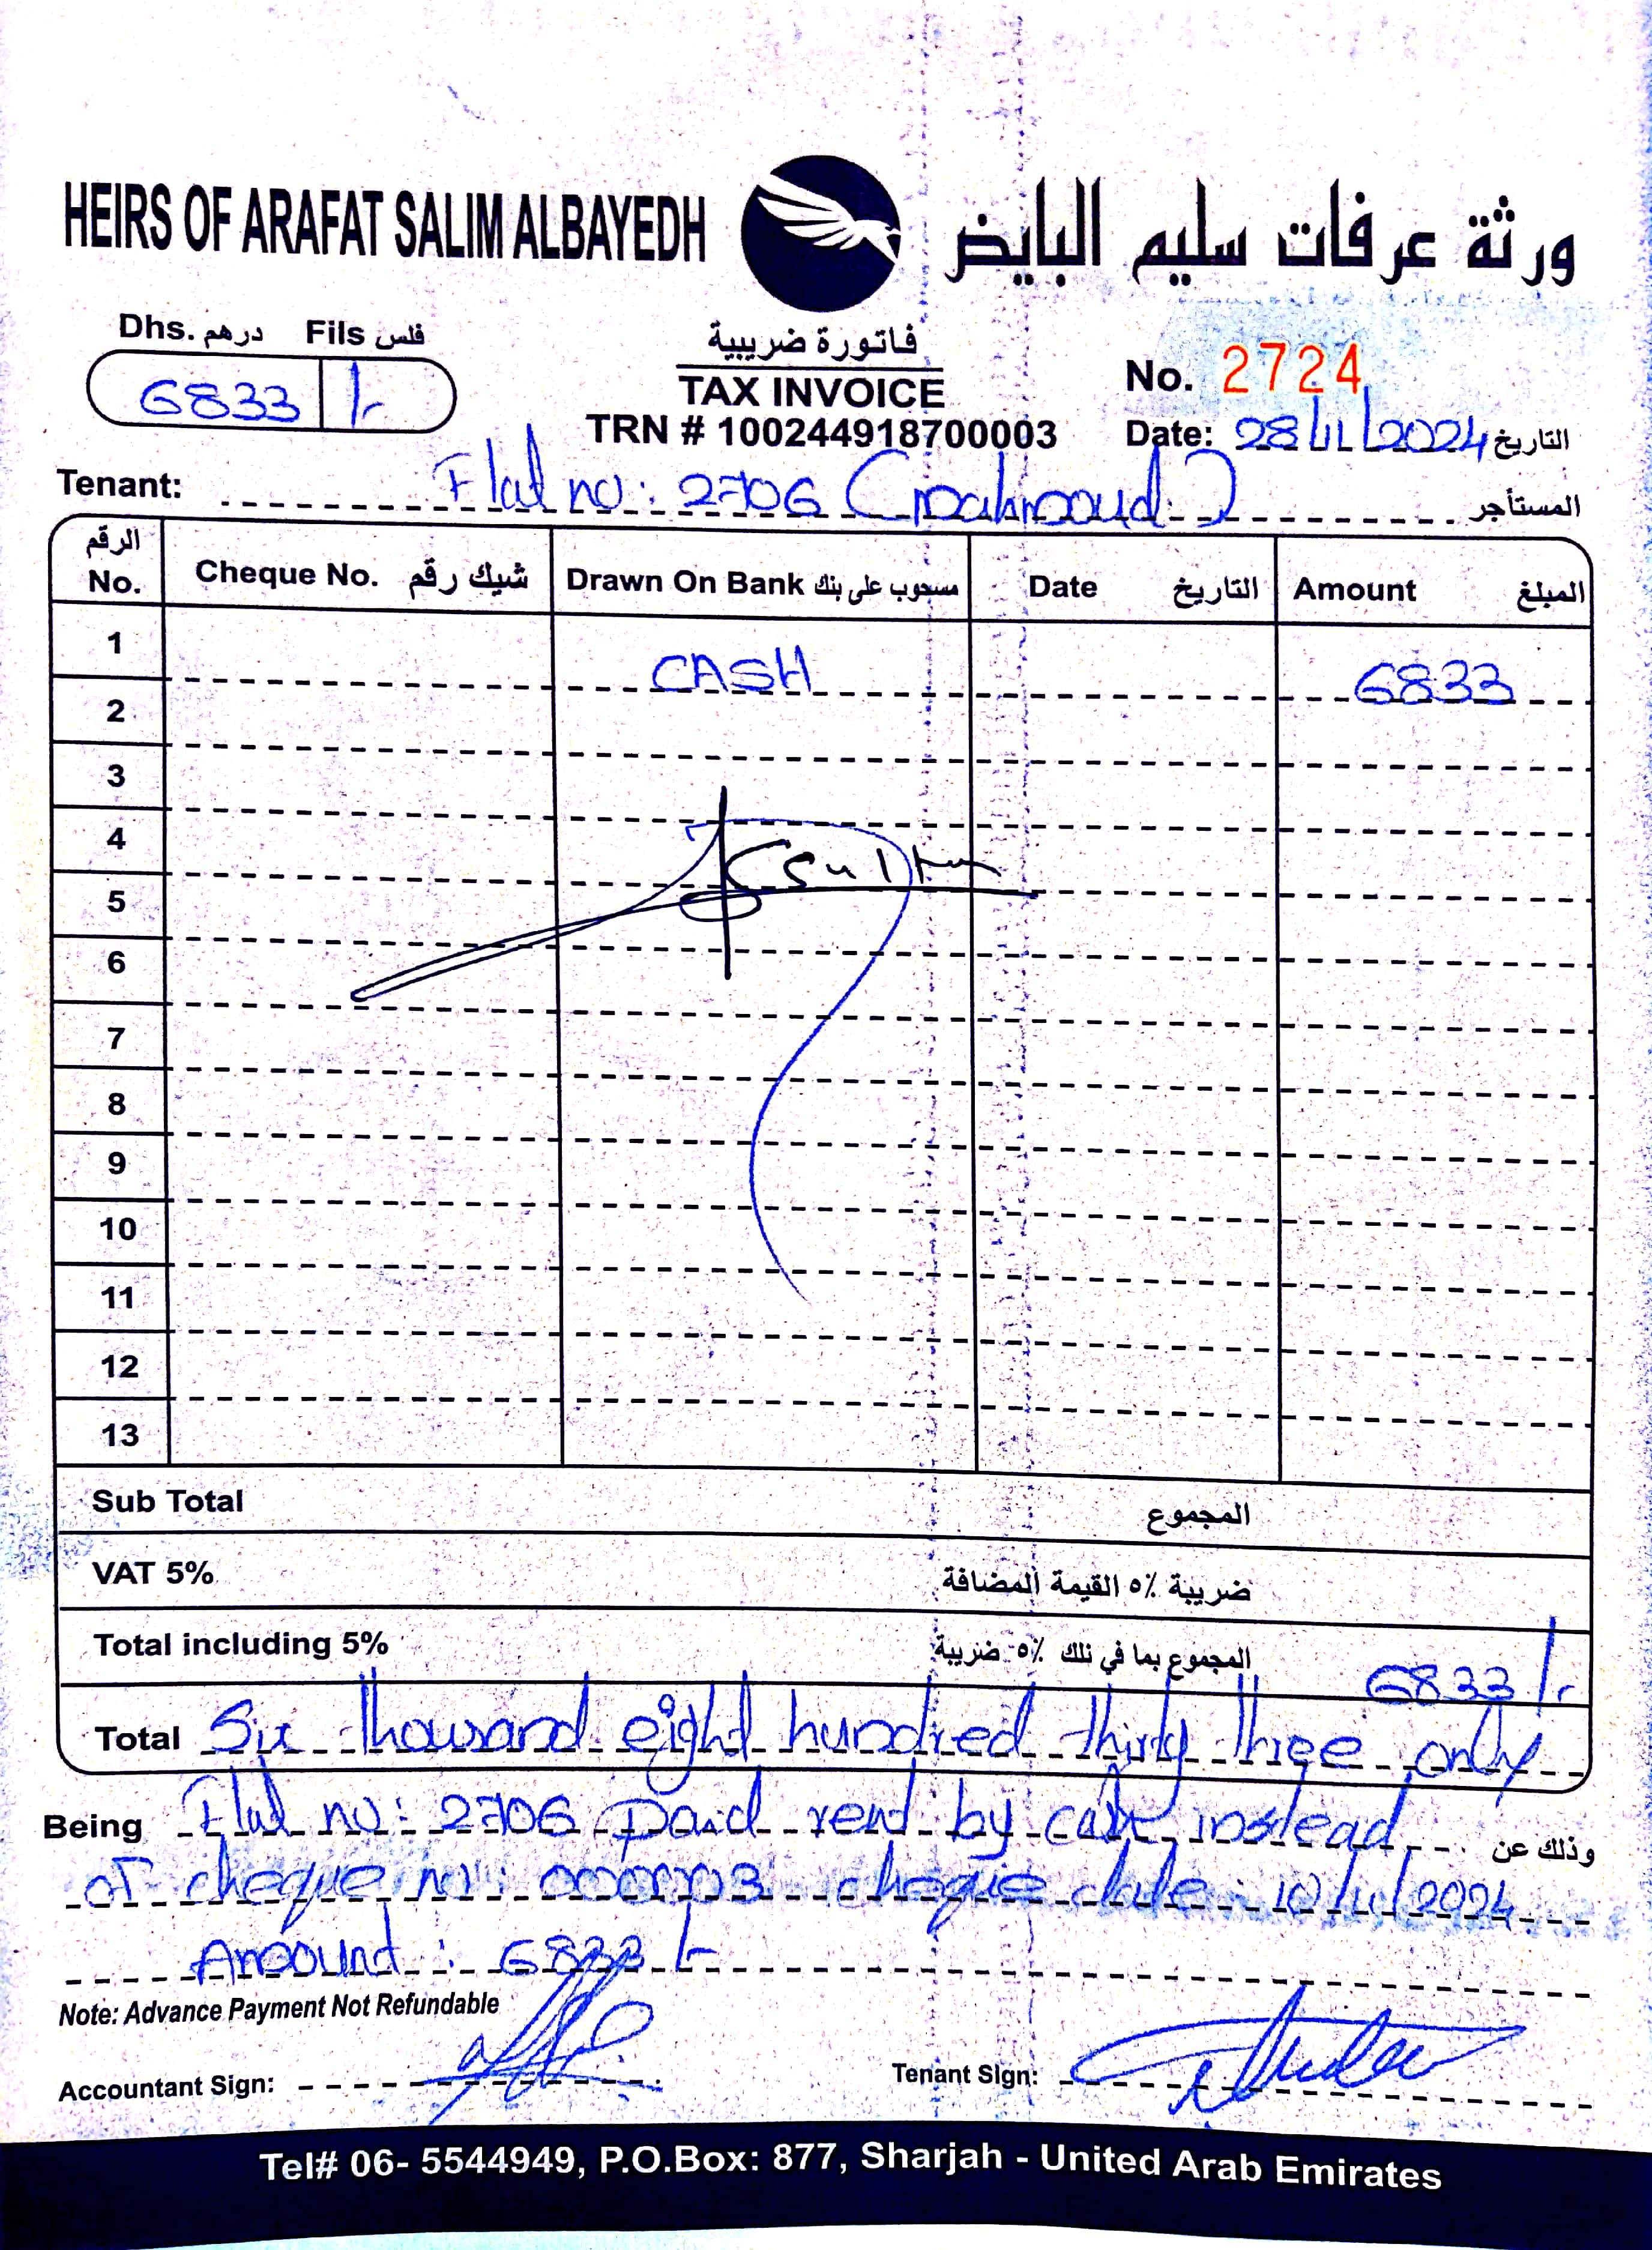 HEIRS OF ARAFAT SALIM ALBAYEDH ورثة عرفات سليم البايض
Dhs. درهم Fils فلس
6833 /-
فاتورة ضريبية
TAX INVOICE
TRN # 100244918700003
No. 2724
Date: 28/11/2024 التاريخ
Tenant: Flat no: 2706 (Mahmoud) المستأجر
الرقم No. Cheque No. شيك رقم Drawn On Bank مسحوب على بنك Date التاريخ Amount المبلغ
1 CASH 6833
2
3
4
5
6
7
8
9
10
11
12
13
Sub Total المجموع
VAT 5% ضريبة ٥٪ القيمة المضافة
Total including 5% المجموع بما في ذلك ٥٪ ضريبة 6833/-
Total Six thousand eight hundred thirty three only
Being Flat no: 2706 paid rent by cash instead وذلك عن
of cheque no: 000003 cheque date: 10/11/2024
Amount: 6833/-
Note: Advance Payment Not Refundable
Accountant Sign: Tenant Sign:
Tel# 06- 5544949, P.O.Box: 877, Sharjah - United Arab Emirates